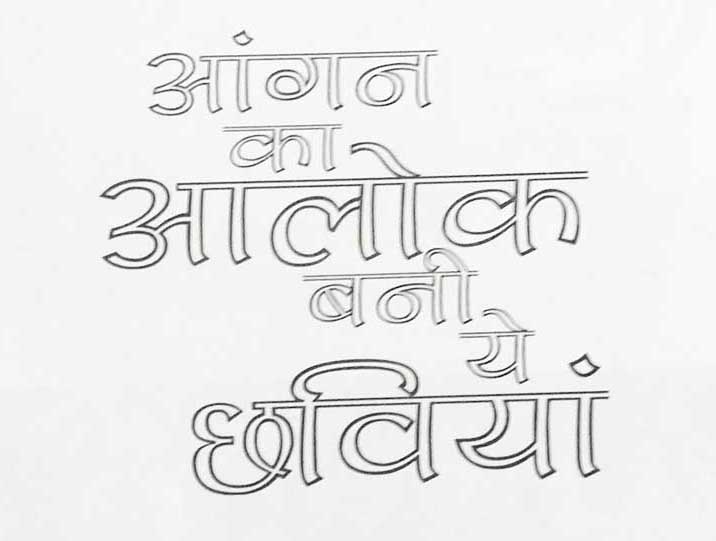 आंगन
का
आलोक
बनी
ये
छवियां